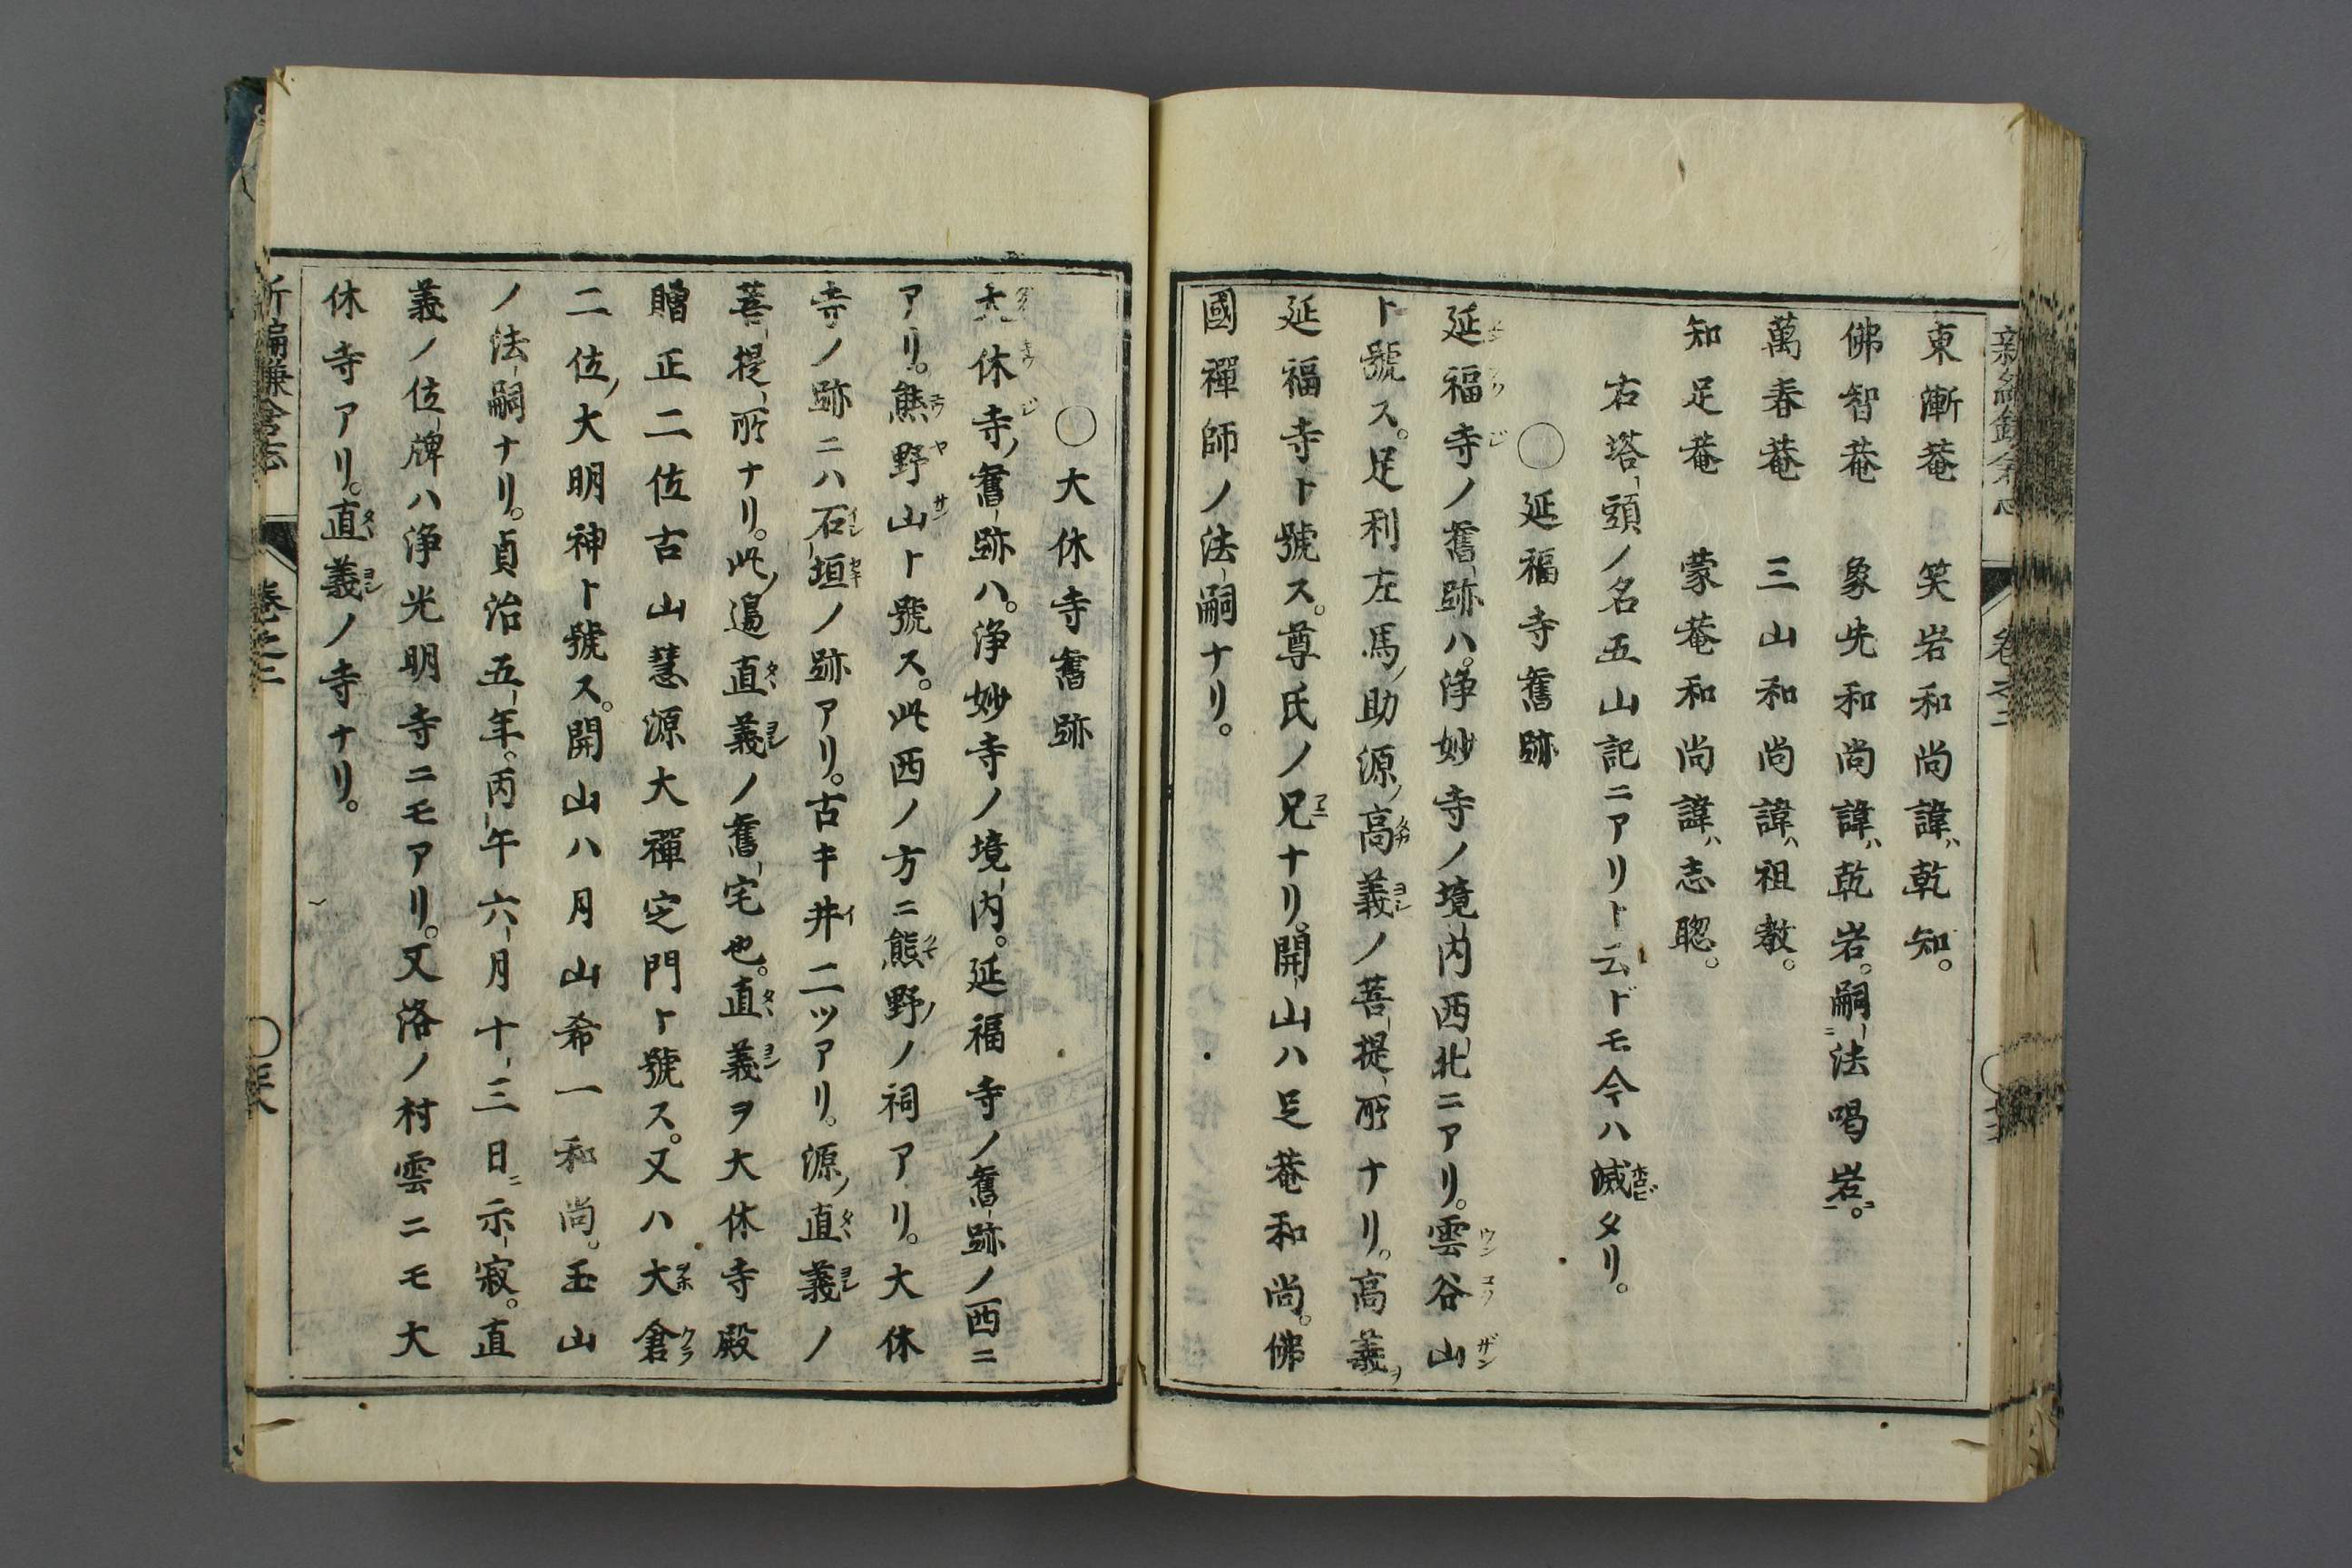 東漸菴　笑岩和尚諱ハ乾知。
佛智菴　象先和尚諱ハ乾岩。嗣法喝岩ニ。
萬春菴　三山和尚諱ハ祖教。
知足菴　蒙菴和尚諱ハ志聰。
右塔頭ノ名五山記ニアリト云ドモ今ハ滅タリ。
〇延福寺舊跡
延福寺ノ舊跡ハ。浄妙寺ノ境内西北ニアリ。雲谷山
ト號ス。足利左馬ノ助源ノ高義ノ菩提所ナリ。高義ヲ
延福寺ト號ス。尊氏ノ兄ナリ。開山ハ足菴和尚。佛
國禪師ノ法嗣ナリ。
〇大休寺舊跡
大休寺ノ舊跡ハ。浄妙寺ノ境内。延福寺ノ舊跡ノ西ニ
アリ。熊野山ト號ス。此西ノ方ニ熊野ノ祠アリ。大休
寺ノ跡ニハ石垣ノ跡アリ。古キ井二ツアリ。源ノ直義ノ
菩提所ナリ。此ノ邊直義ノ舊宅也。直義ヲ大休寺殿
贈正二位古山慧源大禪定門ト號ス。又ハ大倉
二位ノ大明神ト號ス。開山ハ月山希一和尚。玉山
ノ法嗣ナリ。貞治五年。丙午六月十三日ニ示寂。直
義ノ位牌ハ浄光明寺ニモアリ。又洛ノ村雲ニモ大
休寺アリ。直義ノ寺ナリ。
新編鎌倉志
卷之二